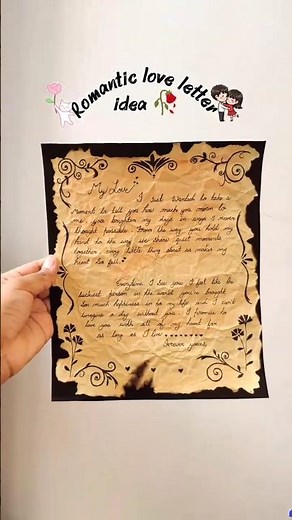 Romantic love letter
idea
My Love
I just wanted to take a
moment to tell you how much you mean to
me. You brighten my days in ways I never
thought possible. From the way you hold my
hand to the way we share quiet moments
together, every little thing about us makes my
heart so full.
Everytime I see you, I feel like the
luckiest person in the world. you've brought
so much happiness in to my life and I can't
imagine a day without you. I promise to
love you with all of my heart for
as long as I live
Forever yours,